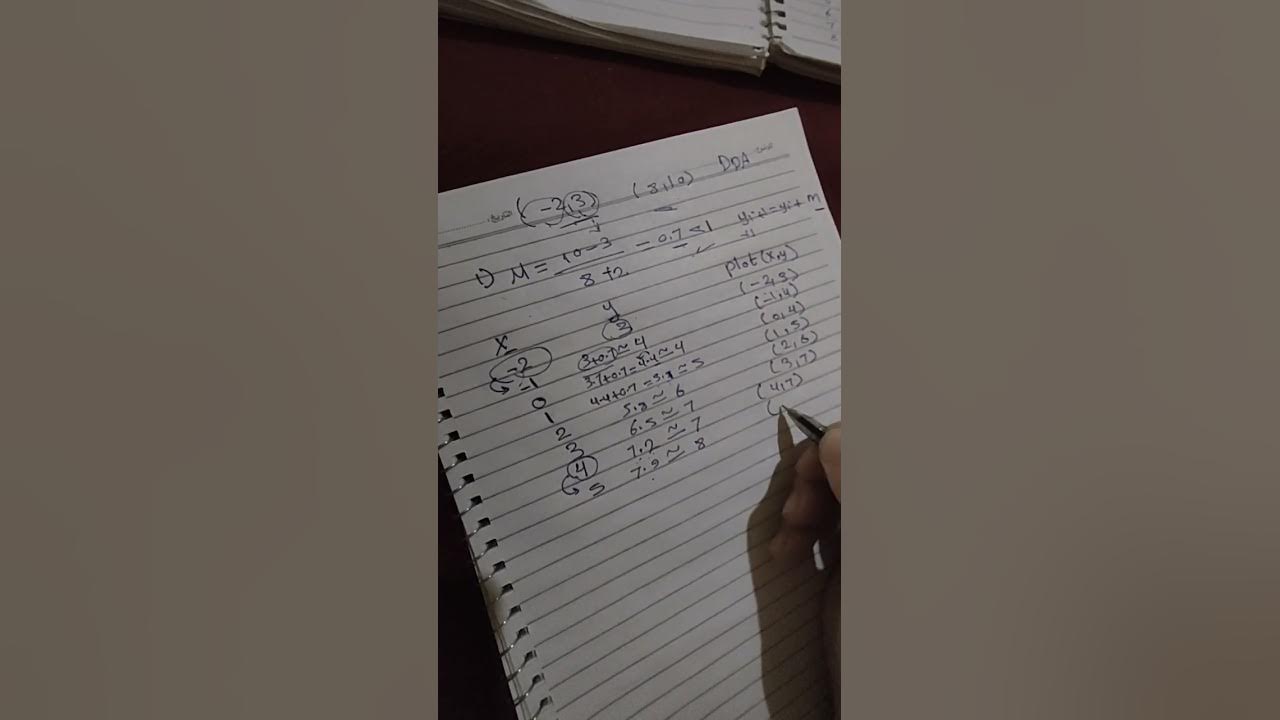 (-2, 3) (8,10) DDA
1) M = 10-3 / 8+2 = 0.7 ≤ 1 yi+1 = yi + M
+1
x y plot(x,y)
-2 3 (-2,3)
-1 3+0.7 ≈ 4 (-1,4)
0 3.7+0.7=4.4 ≈ 4 (0,4)
1 4.4+0.7=5.1 ≈ 5 (1,5)
2 5.8 ≈ 6 (2,6)
3 6.5 ≈ 7 (3,7)
4 7.2 ≈ 7 (4,7)
5 7.9 ≈ 8 (